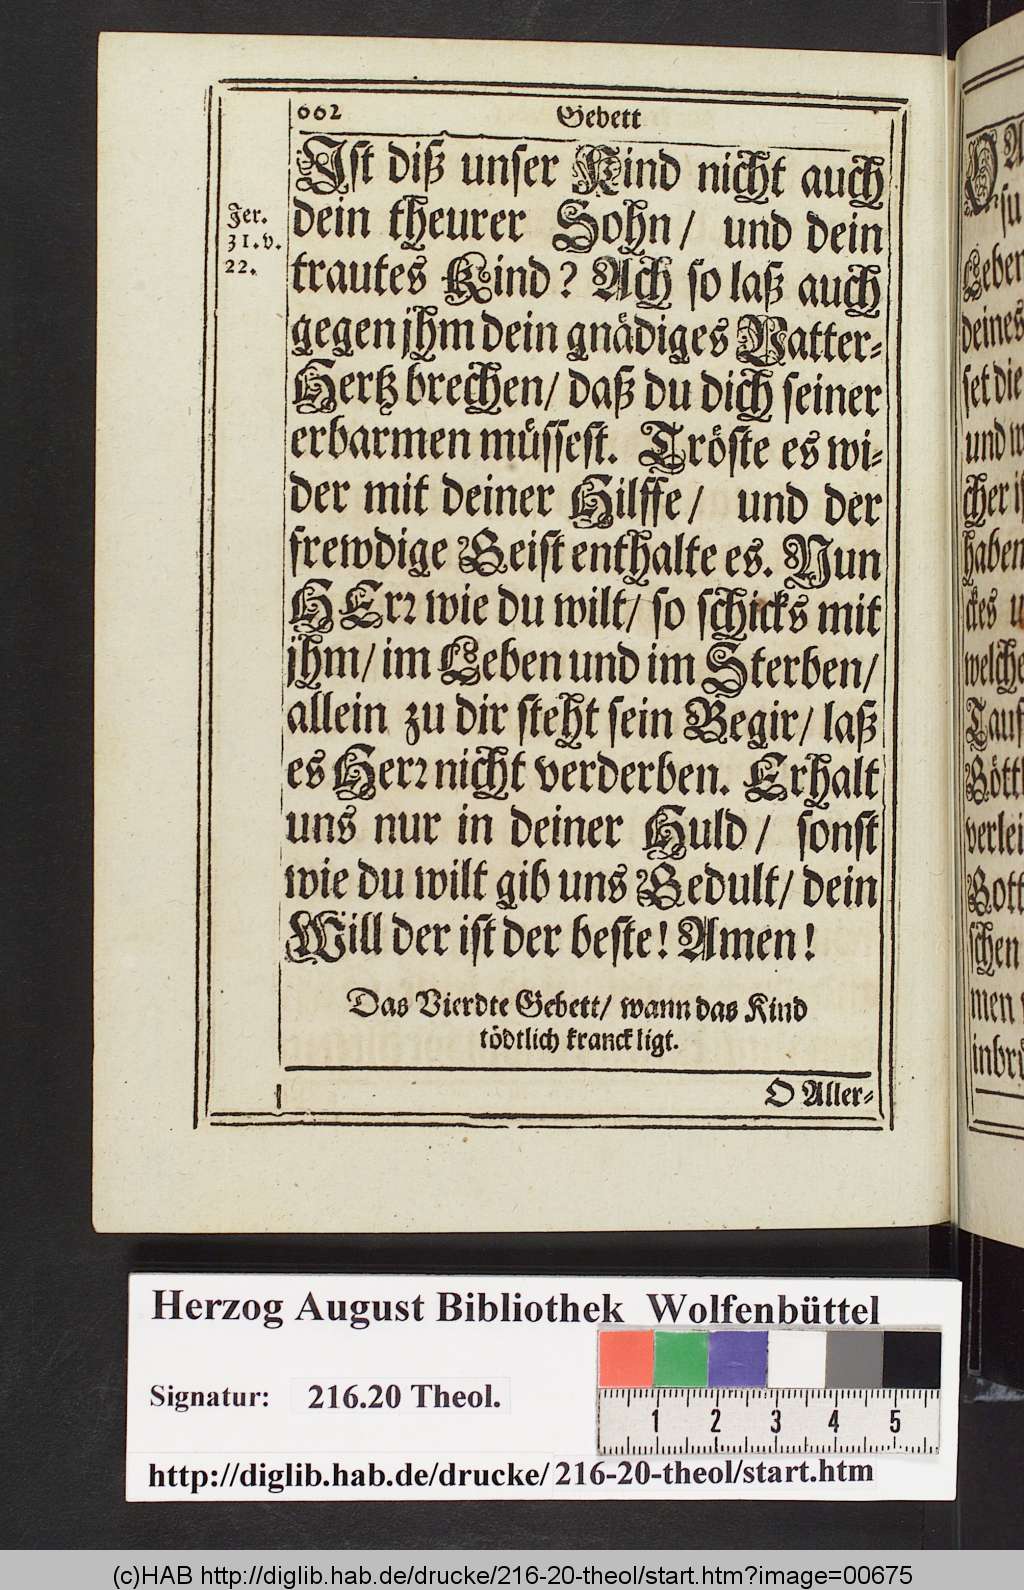 662 Gebett
Jst diß unser Kind nicht auch
dein theurer Sohn / und dein
trautes Kind? Ach so laß auch
gegen jhm dein gnädiges Vatter-
Hertz brechen / daß du dich seiner
erbarmen müssest. Tröste es wi-
der mit deiner Hilffe / und der
frewdige Geist enthalte es. Nun
HErr wie du wilt / so schicks mit
jhm / im Leben und im Sterben /
allein zu dir steht sein Begir / laß
es Herr nicht verderben. Erhalt
uns nur in deiner Huld / sonst
wie du wilt gib uns Gedult / dein
Will der ist der beste! Amen!
Jer.
31.v.
22.
Das Vierdte Gebett / wann das Kind
tödtlich kranck ligt.
O Aller-
su
Leben
deines
set die
und w
cher is
haben
ckes u
welche
Tauf
Göttl
verlei
Gott
schen
men
inbrü
Herzog August Bibliothek Wolfenbüttel
Signatur: 216.20 Theol.
1 2 3 4 5
http://diglib.hab.de/drucke/216-20-theol/start.htm
(c)HAB http://diglib.hab.de/drucke/216-20-theol/start.htm?image=00675